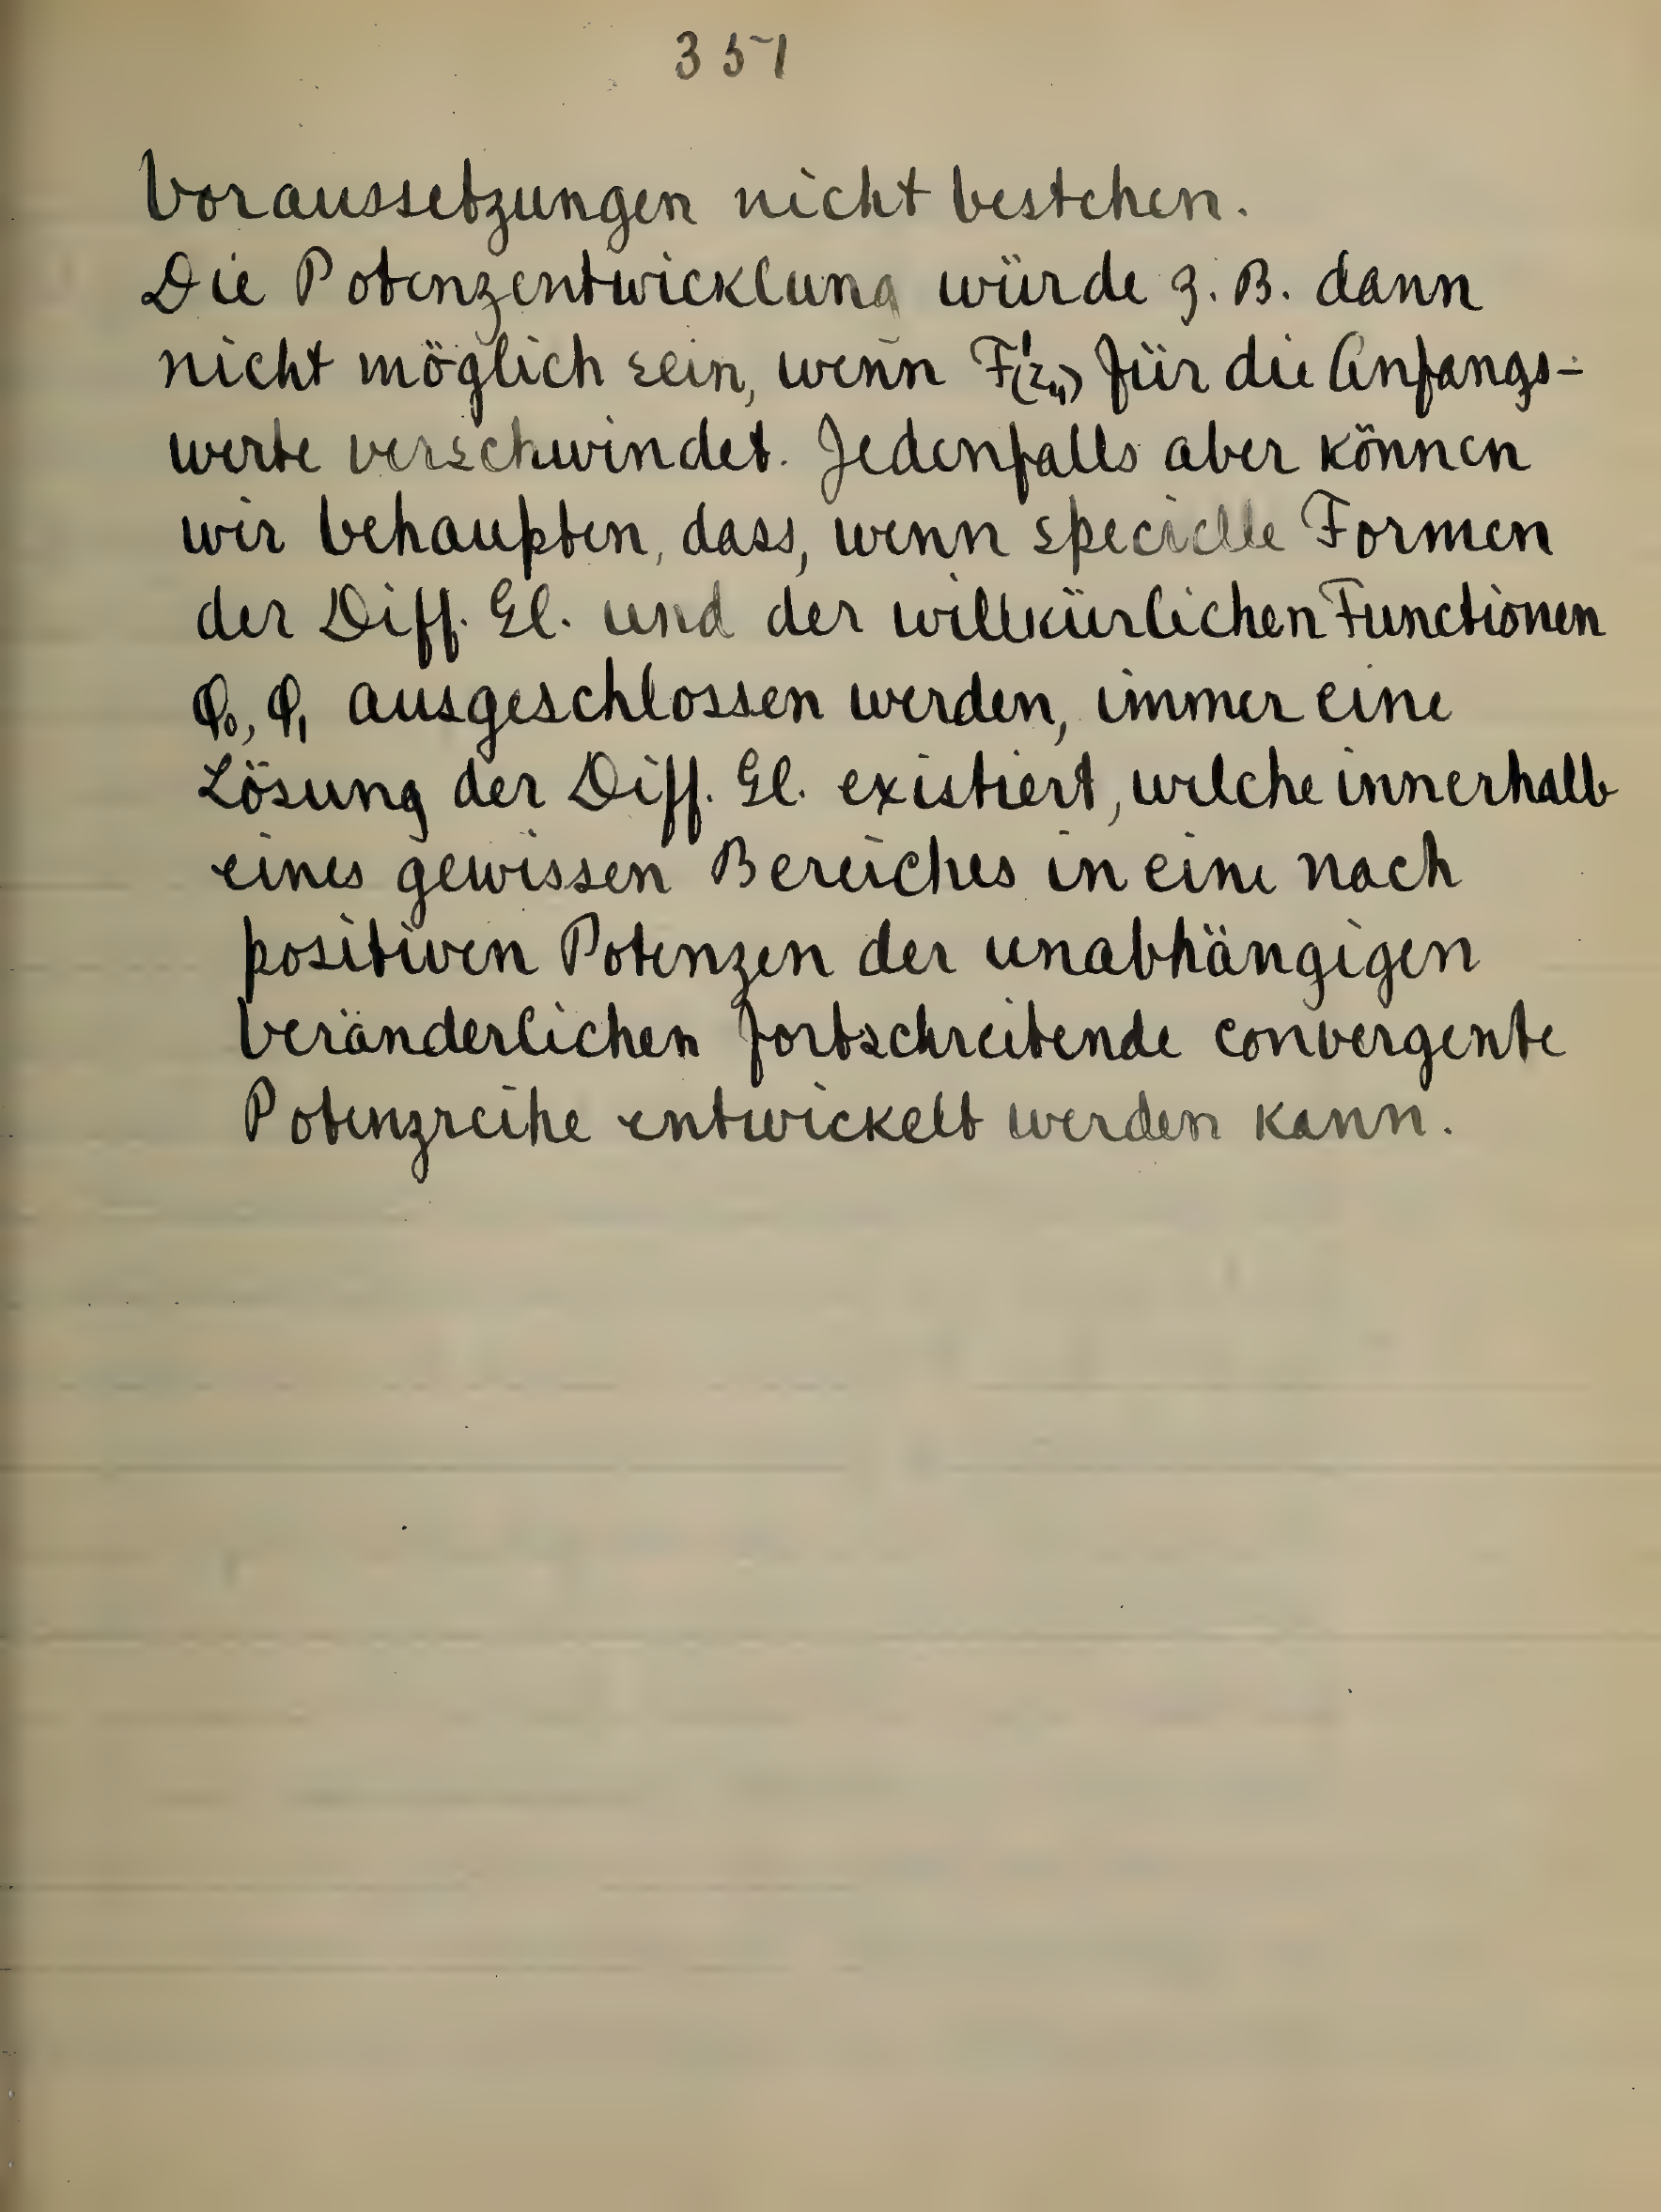 351
Voraussetzungen nicht bestehen.
Die Potenzentwicklung würde z. B. dann
nicht möglich sein, wenn F'(z₁₁) für die Anfangs-
werte verschwindet. Jedenfalls aber können
wir behaupten, dass, wenn specielle Formen
der Diff. Gl. und der willkürlichen Functionen
φ₀, φ₁ ausgeschlossen werden, immer eine
Lösung der Diff. Gl. existiert, welche innerhalb
eines gewissen Bereiches in eine nach
positiven Potenzen der unabhängigen
Veränderlichen fortschreitende convergente
Potenzreihe entwickelt werden kann.